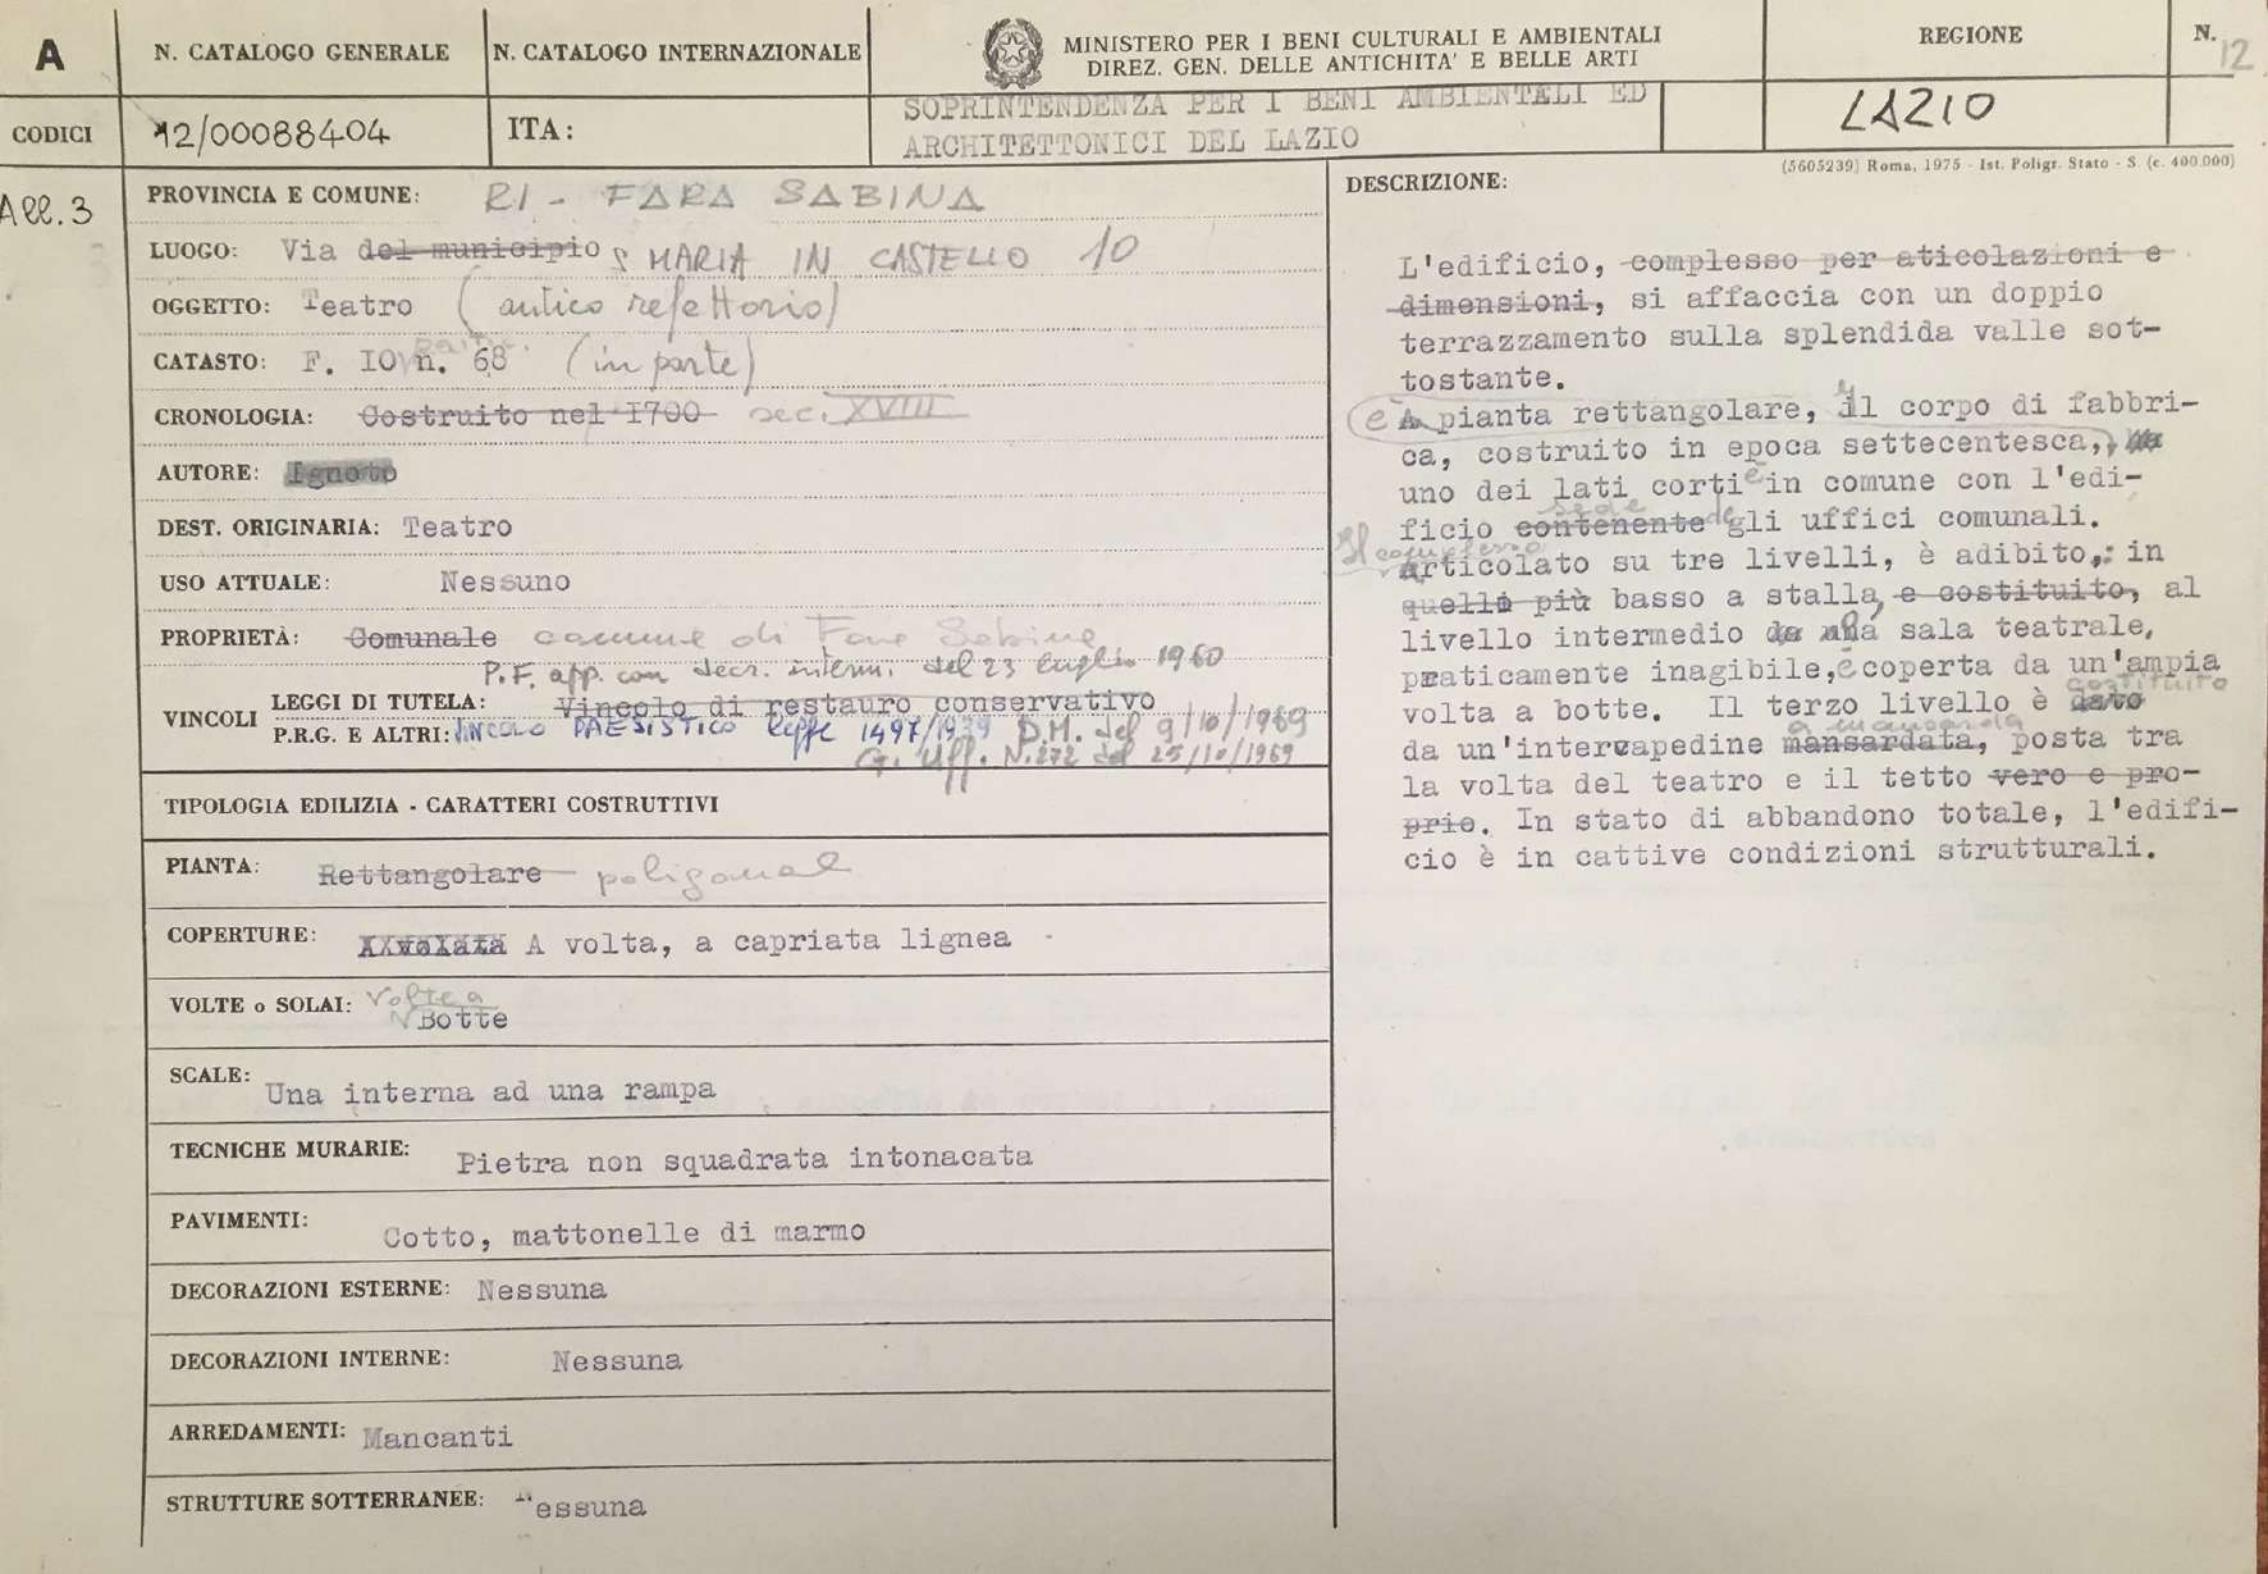 A
N. CATALOGO GENERALE
N. CATALOGO INTERNAZIONALE
MINISTERO PER I BENI CULTURALI E AMBIENTALI
DIREZ. GEN. DELLE ANTICHITA' E BELLE ARTI
REGIONE
N.
12
CODICI
12/00088404
ITA:
SOPRINTENDENZA PER I BENI AMBIENTALI ED
ARCHITETTONICI DEL LAZIO
LAZIO
(5605239) Roma, 1975 - Ist. Poligr. Stato - S. (c. 400.000)
All. 3
PROVINCIA E COMUNE: RI - FARA SABINA
LUOGO: Via del municipio S MARIA IN CASTELLO 10
OGGETTO: Teatro (antico refettorio)
CATASTO: F. IO n. 68 (in parte)
CRONOLOGIA: Costruito nel I700 sec. XVIII
AUTORE: Ignoto
DEST. ORIGINARIA: Teatro
USO ATTUALE: Nessuno
PROPRIETÀ: Comunale comune di Fara Sabina
P.F. app. con decr. interm. del 23 luglio 1960
VINCOLI
LEGGI DI TUTELA: Vincolo di restauro conservativo
P.R.G. E ALTRI: VINCOLO PAESISTICO legge 1497/1939 D.M. del 9/10/1969
G. Uff. N.272 del 25/10/1969
TIPOLOGIA EDILIZIA - CARATTERI COSTRUTTIVI
PIANTA: Rettangolare poligonale
COPERTURE: A volta, a capriata lignea
VOLTE o SOLAI: Volte a
Botte
SCALE: Una interna ad una rampa
TECNICHE MURARIE: Pietra non squadrata intonacata
PAVIMENTI: Cotto, mattonelle di marmo
DECORAZIONI ESTERNE: Nessuna
DECORAZIONI INTERNE: Nessuna
ARREDAMENTI: Mancanti
STRUTTURE SOTTERRANEE: Nessuna
DESCRIZIONE:
L'edificio, complesso per aticolazioni e
dimensioni, si affaccia con un doppio
terrazzamento sulla splendida valle sot-
tostante.
è A pianta rettangolare, il corpo di fabbri-
ca, costruito in epoca settecentesca,
uno dei lati corti è in comune con l'edi-
sede
ficio contenente degli uffici comunali.
Il complesso
articolato su tre livelli, è adibito, in
quello più basso a stalla, e costituito, al
livello intermedio da una sala teatrale,
praticamente inagibile, è coperta da un'ampia
costituito
volta a botte. Il terzo livello è dato
a mansarda
da un'intercapedine mansardata, posta tra
la volta del teatro e il tetto vero e pro-
prio. In stato di abbandono totale, l'edifi-
cio è in cattive condizioni strutturali.